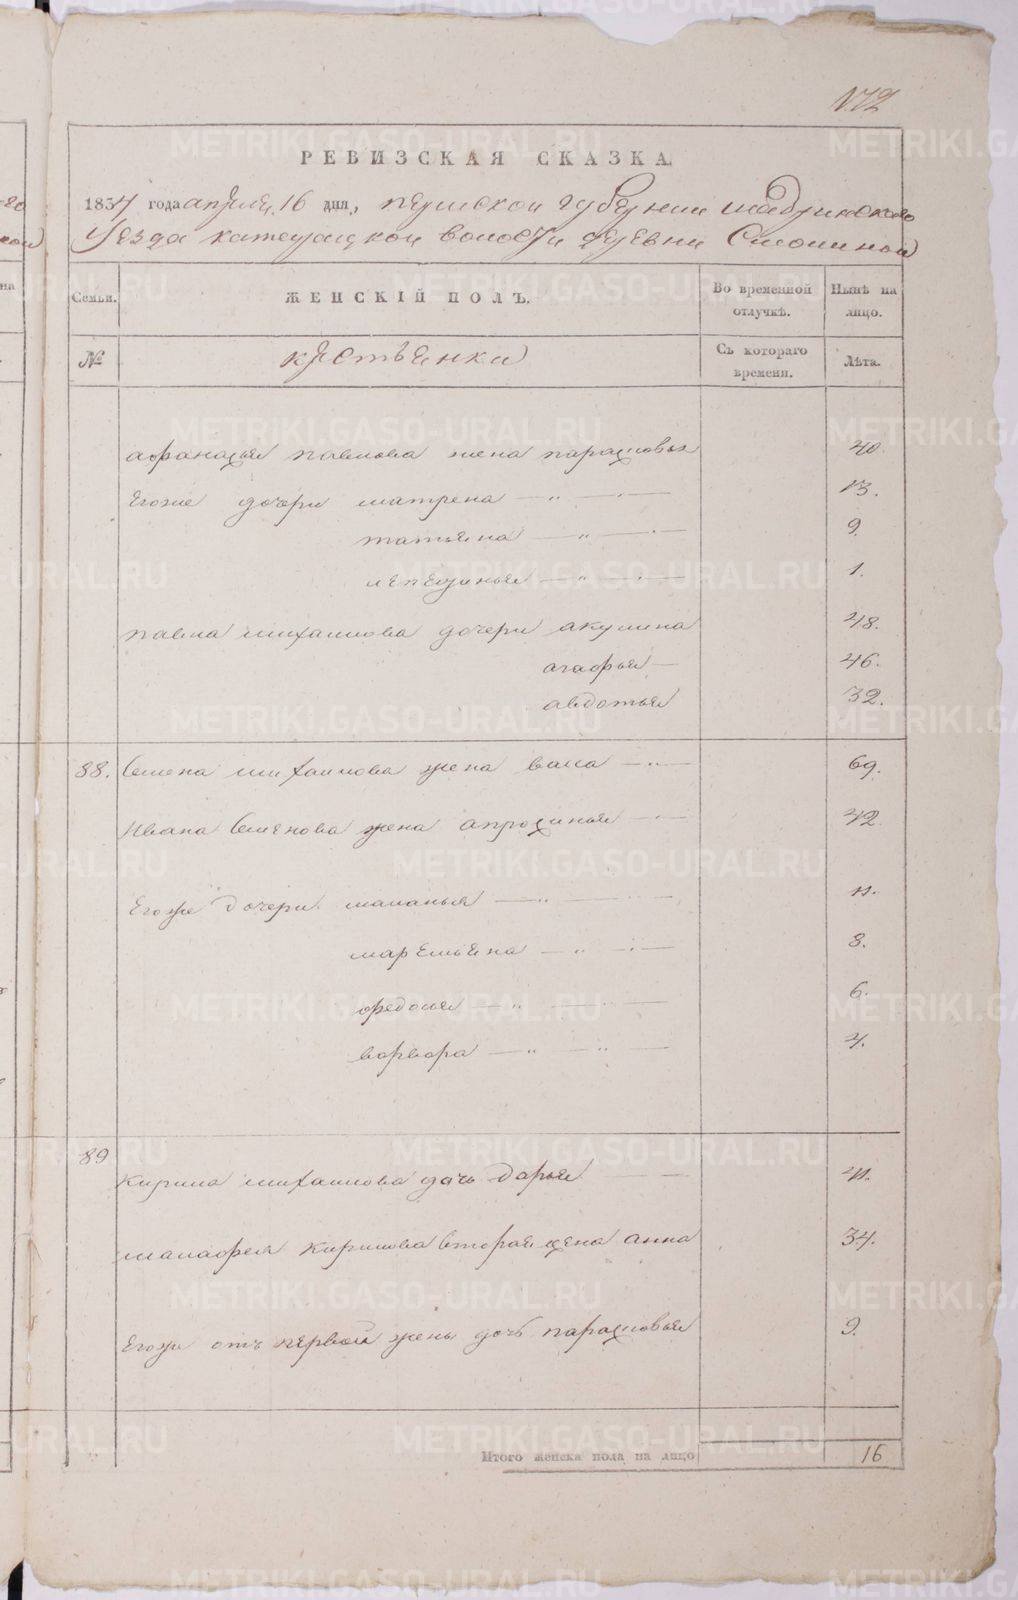 172
РЕВИЗСКАЯ СКАЗКА.
1834 года апреля 16 дня, пермской губернии шадринского
уезда катецкой волости деревни Смолиной
Семьи.
ЖЕНСКІЙ ПОЛЪ.
Во временной отлучкѣ.
Нынѣ на лицо.
№
крестьянки
Съ котораго времени.
Лѣта.
афанасья павлова жена парасковья 40.
Егоже дочери матрена — „ — 13.
татьяна — „ — 9.
лепестинья — „ — 1.
павла михаилова дочери акулина 48.
агафья — 46.
авдотья 32.
88. Семена михаилова жена васа — „ — 69.
Ивана Семенова жена апросинья — 42.
Егоже дочери маланья — „ — 11.
маремьяна — „ — 8.
федосья — „ — 6.
варвара — „ — „ — 4.
89
Кирила михаилова дочь дарья — 41.
малафея Кирилова вторая жена анна 34.
Егоже отъ первой жены дочь парасковья 9.
Итого женска пола на лицо 16
METRIKI.GASO-URAL.RU